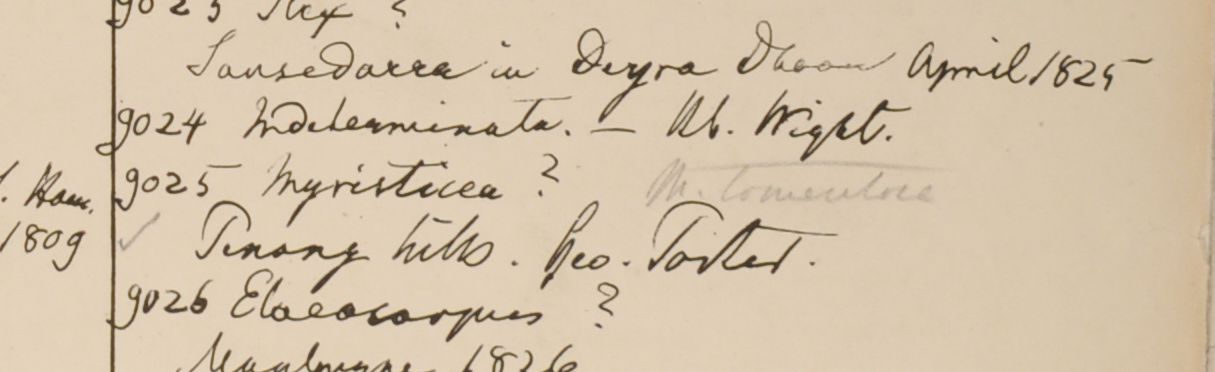 9023 Ilex ?
Sansedarra in Deyra Dhoon April 1825
9024 Indeterminata. — Hb. Wight.
9025 Myristicea ? M. tomentosa
Ham.
1809 ✓ Penang hills. Geo. Porter.
9026 Elaeocarpus ?
1826